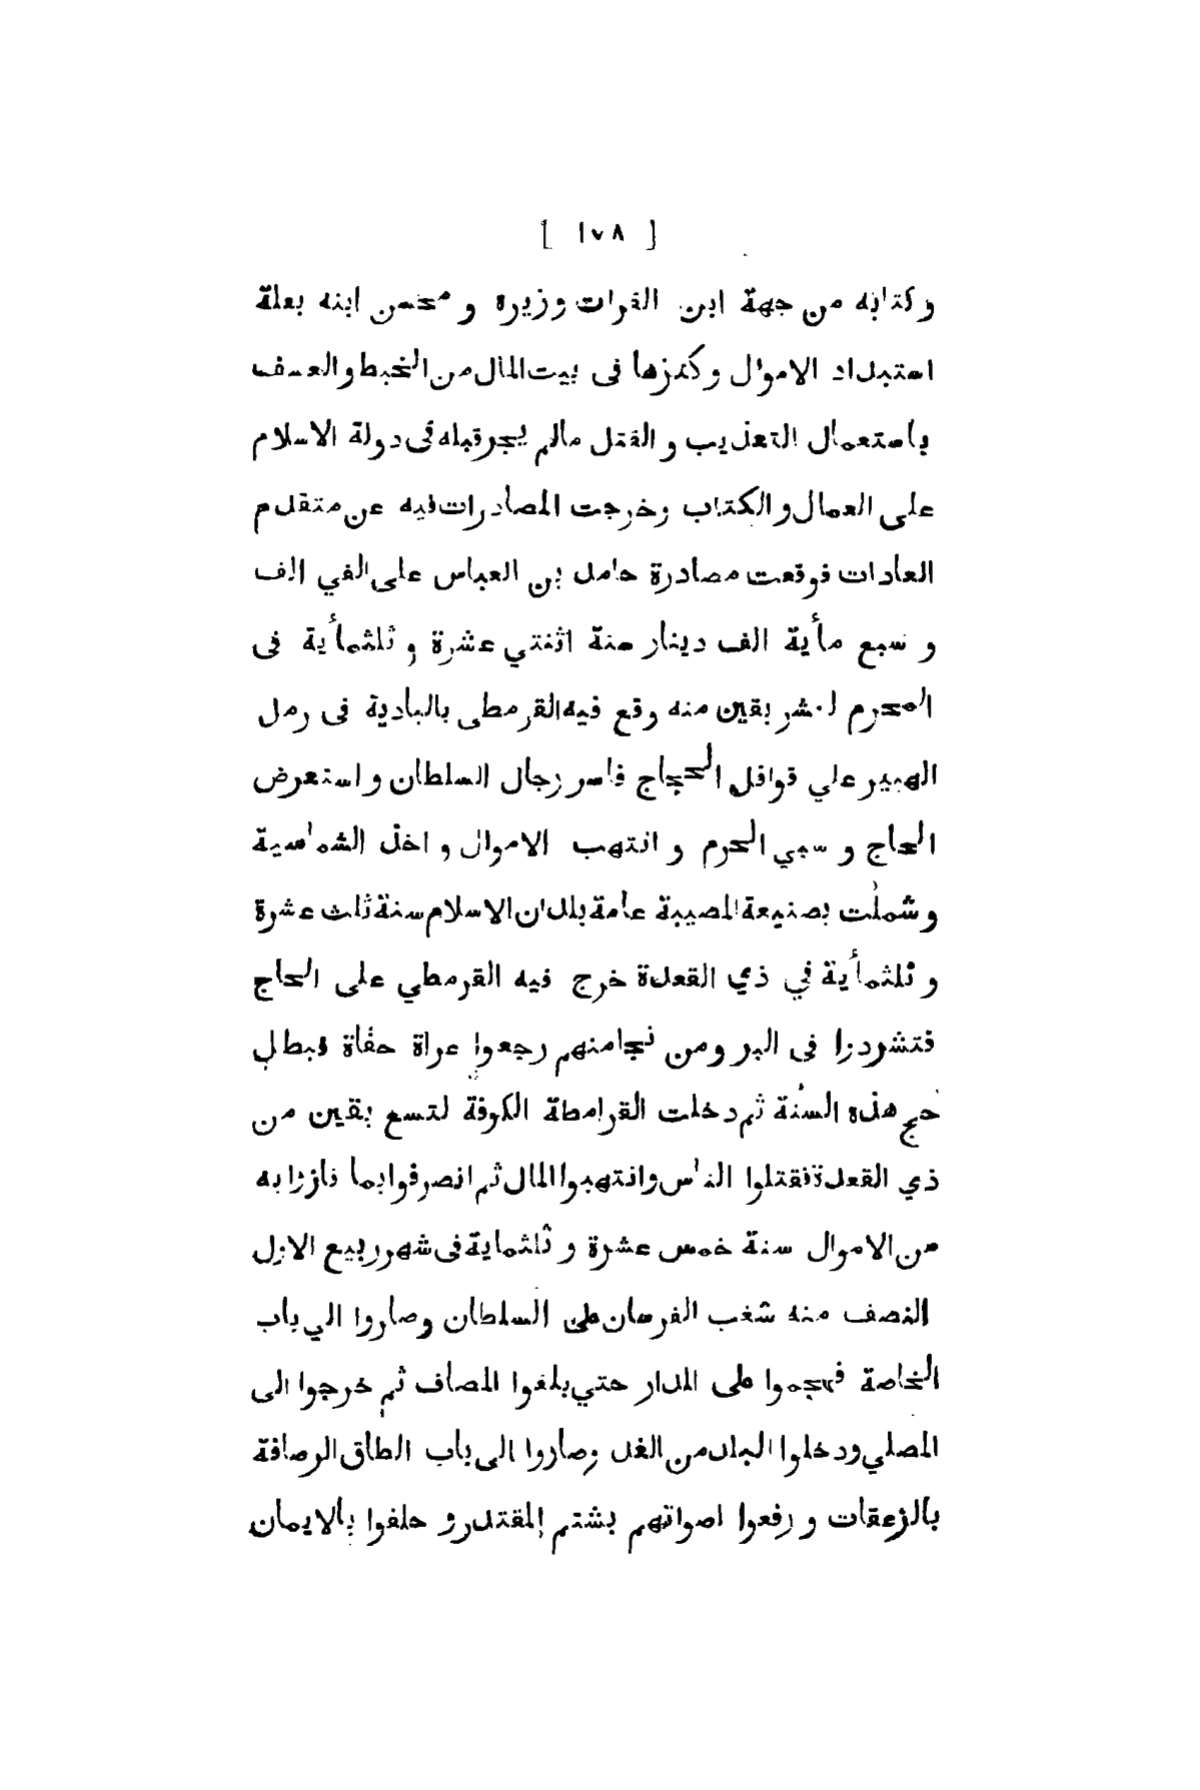 [ ١٧٨ ]
وكتابه من جهة ابن الفرات وزيره و محسن ابنه بعلة
استبداد الاموال وكنزها فى بيت المال من الخبط و العسف
باستعمال التعذيب و القتل مالم يجر قبله فى دولة الاسلام
على العمال و الكتاب وخرجت المصادرات فيه عن متقدم
العادات فوقعت مصادرة حامد بن العباس على الفي الف
و سبع مأية الف دينار سنة اثنتي عشرة و ثلثمأية فى
المحرم لعشر بقين منه وقع فيه القرمطى بالبادية فى رمل
الهبير علي قوافل الحجاج فاسر رجال السلطان و استعرض
الحاج و سبي الحرم و انتهب الاموال و اخذ الشماسية
و شملت بصنيعة المصيبة عامة بلدان الاسلام سنة ثلث عشرة
و ثلثمأية في ذي القعدة خرج فيه القرمطي على الحاج
فتشردوا فى البر ومن نجامنهم رجعوا عراة حفاة فبطل
حج هذه السنة ثم دخلت القرامطة الكوفة لتسع بقين من
ذي القعدة فقتلوا الناس وانتهبوا المال ثم انصرفوا بما فازوا به
من الاموال سنة خمس عشرة و ثلثماية فى شهر ربيع الاول
النصف منه شغب الفرسان على السلطان وصاروا الي باب
الخاصة فهجموا على الدار حتي بلغوا المصاف ثم خرجوا الى
المصلي ودخلوا البلد من الغد وصاروا الى باب الطاق الرصافة
بالزعقات و رفعوا اصواتهم بشتم المقتدر و حلفوا بالايمان